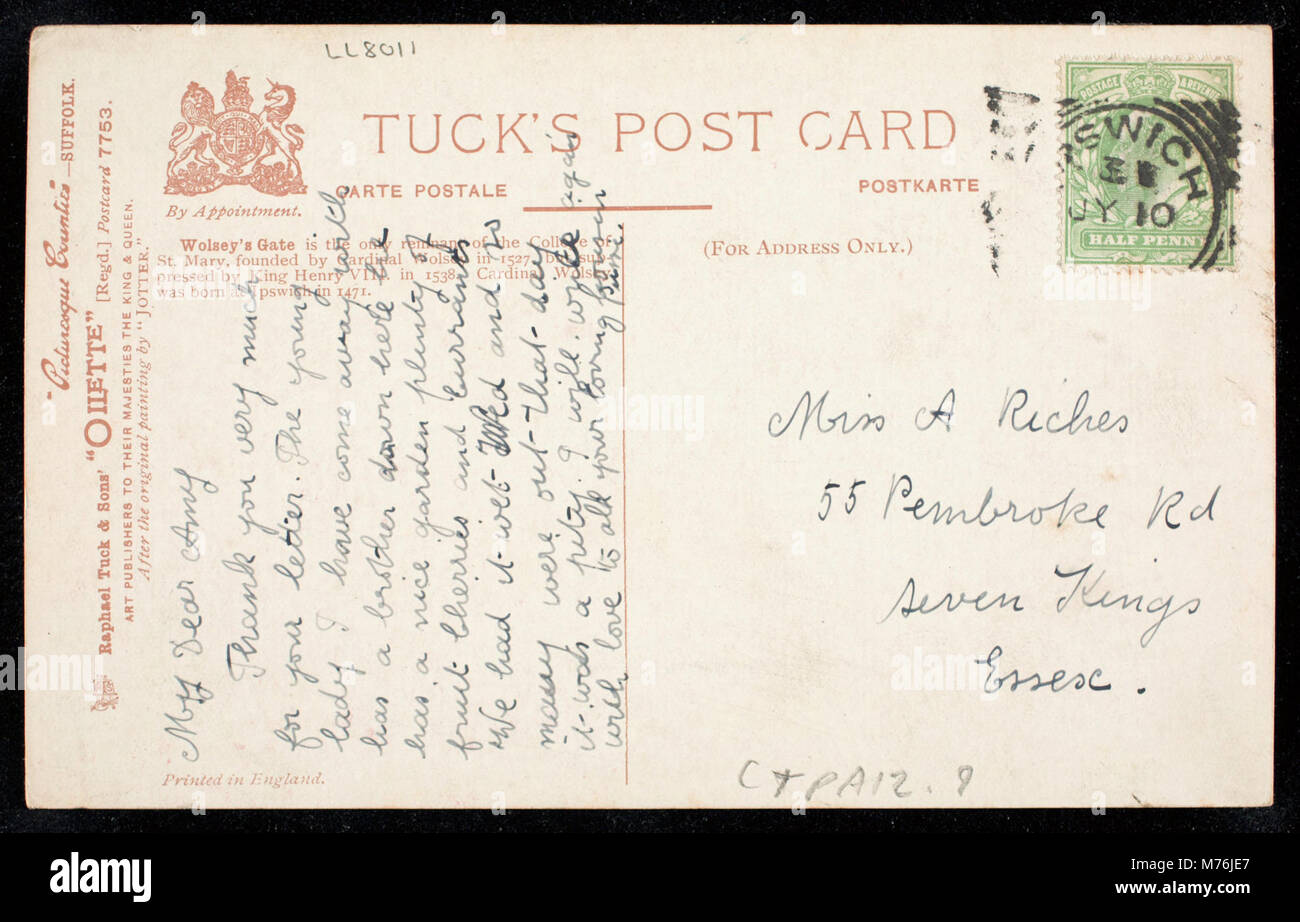 LL8011
"Picturesque Counties"—SUFFOLK.
Raphael Tuck & Sons' "OILETTE" [Regd.] Postcard 7753.
ART PUBLISHERS TO THEIR MAJESTIES THE KING & QUEEN.
After the original painting by "JOTTER."
By Appointment.
TUCK'S POST CARD
CARTE POSTALE
POSTKARTE
(FOR ADDRESS ONLY.)
Wolsey's Gate is the only remnant of the College of
St. Mary, founded by Cardinal Wolsey in 1527, but sup-
pressed by King Henry VIII. in 1538. Cardinal Wolsey
was born at Ipswich in 1471.
My Dear Amy
Thank you very much
for your letter. The young
lady I have come away with
has a brother down here he
has a nice garden plenty of
fruit cherries and currants
We had it wet Wed and so
many were out that day
it was a pity. I will write again
with love to all your loving cousin
Printed in England.
POSTAGE & REVENUE
HALF PENNY
IPSWICH
JY 10
Miss A Riches
55 Pembroke Rd
Seven Kings
Essex.
C+PA12. 9
alamy
alamy
www.alamy.com
Image ID: M76JE7